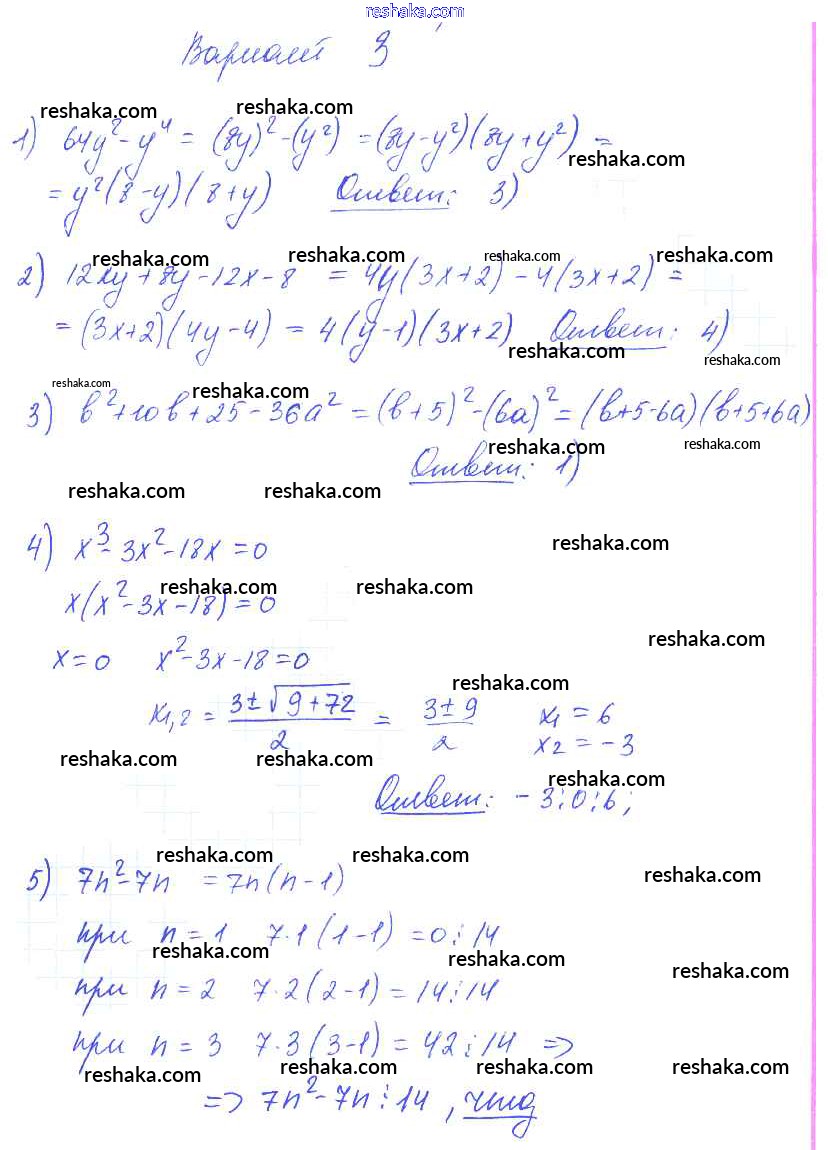 reshaka.com
Вариант 3
reshaka.com reshaka.com
1) 64y² - y⁴ = (8y)² - (y²) = (8y - y²)(8y + y²) =
reshaka.com
= y²(8 - y)(8 + y) Ответ: 3)
reshaka.com reshaka.com reshaka.com reshaka.com
2) 12xy + 8y - 12x - 8 = 4y(3x + 2) - 4(3x + 2) =
= (3x + 2)(4y - 4) = 4(y - 1)(3x + 2) Ответ: 4)
reshaka.com reshaka.com
reshaka.com reshaka.com
3) b² + 10b + 25 - 36a² = (b + 5)² - (6a)² = (b + 5 - 6a)(b + 5 + 6a)
reshaka.com reshaka.com
Ответ: 1)
reshaka.com reshaka.com
4) x³ - 3x² - 18x = 0
reshaka.com
reshaka.com reshaka.com
x(x² - 3x - 18) = 0
reshaka.com
x = 0 x² - 3x - 18 = 0
reshaka.com
x1,2 = (3 ± √(9 + 72))/2 = (3 ± 9)/2 x₁ = 6
x₂ = -3
reshaka.com reshaka.com
reshaka.com
Ответ: -3; 0; 6;
reshaka.com reshaka.com
5) 7n² - 7n = 7n(n - 1)
reshaka.com
при n = 1 7·1(1 - 1) = 0 ⋮ 14
reshaka.com reshaka.com
reshaka.com
при n = 2 7·2(2 - 1) = 14 ⋮ 14
при n = 3 7·3(3 - 1) = 42 ⋮ 14 =>
reshaka.com reshaka.com reshaka.com reshaka.com
=> 7n² - 7n ⋮ 14, чтд